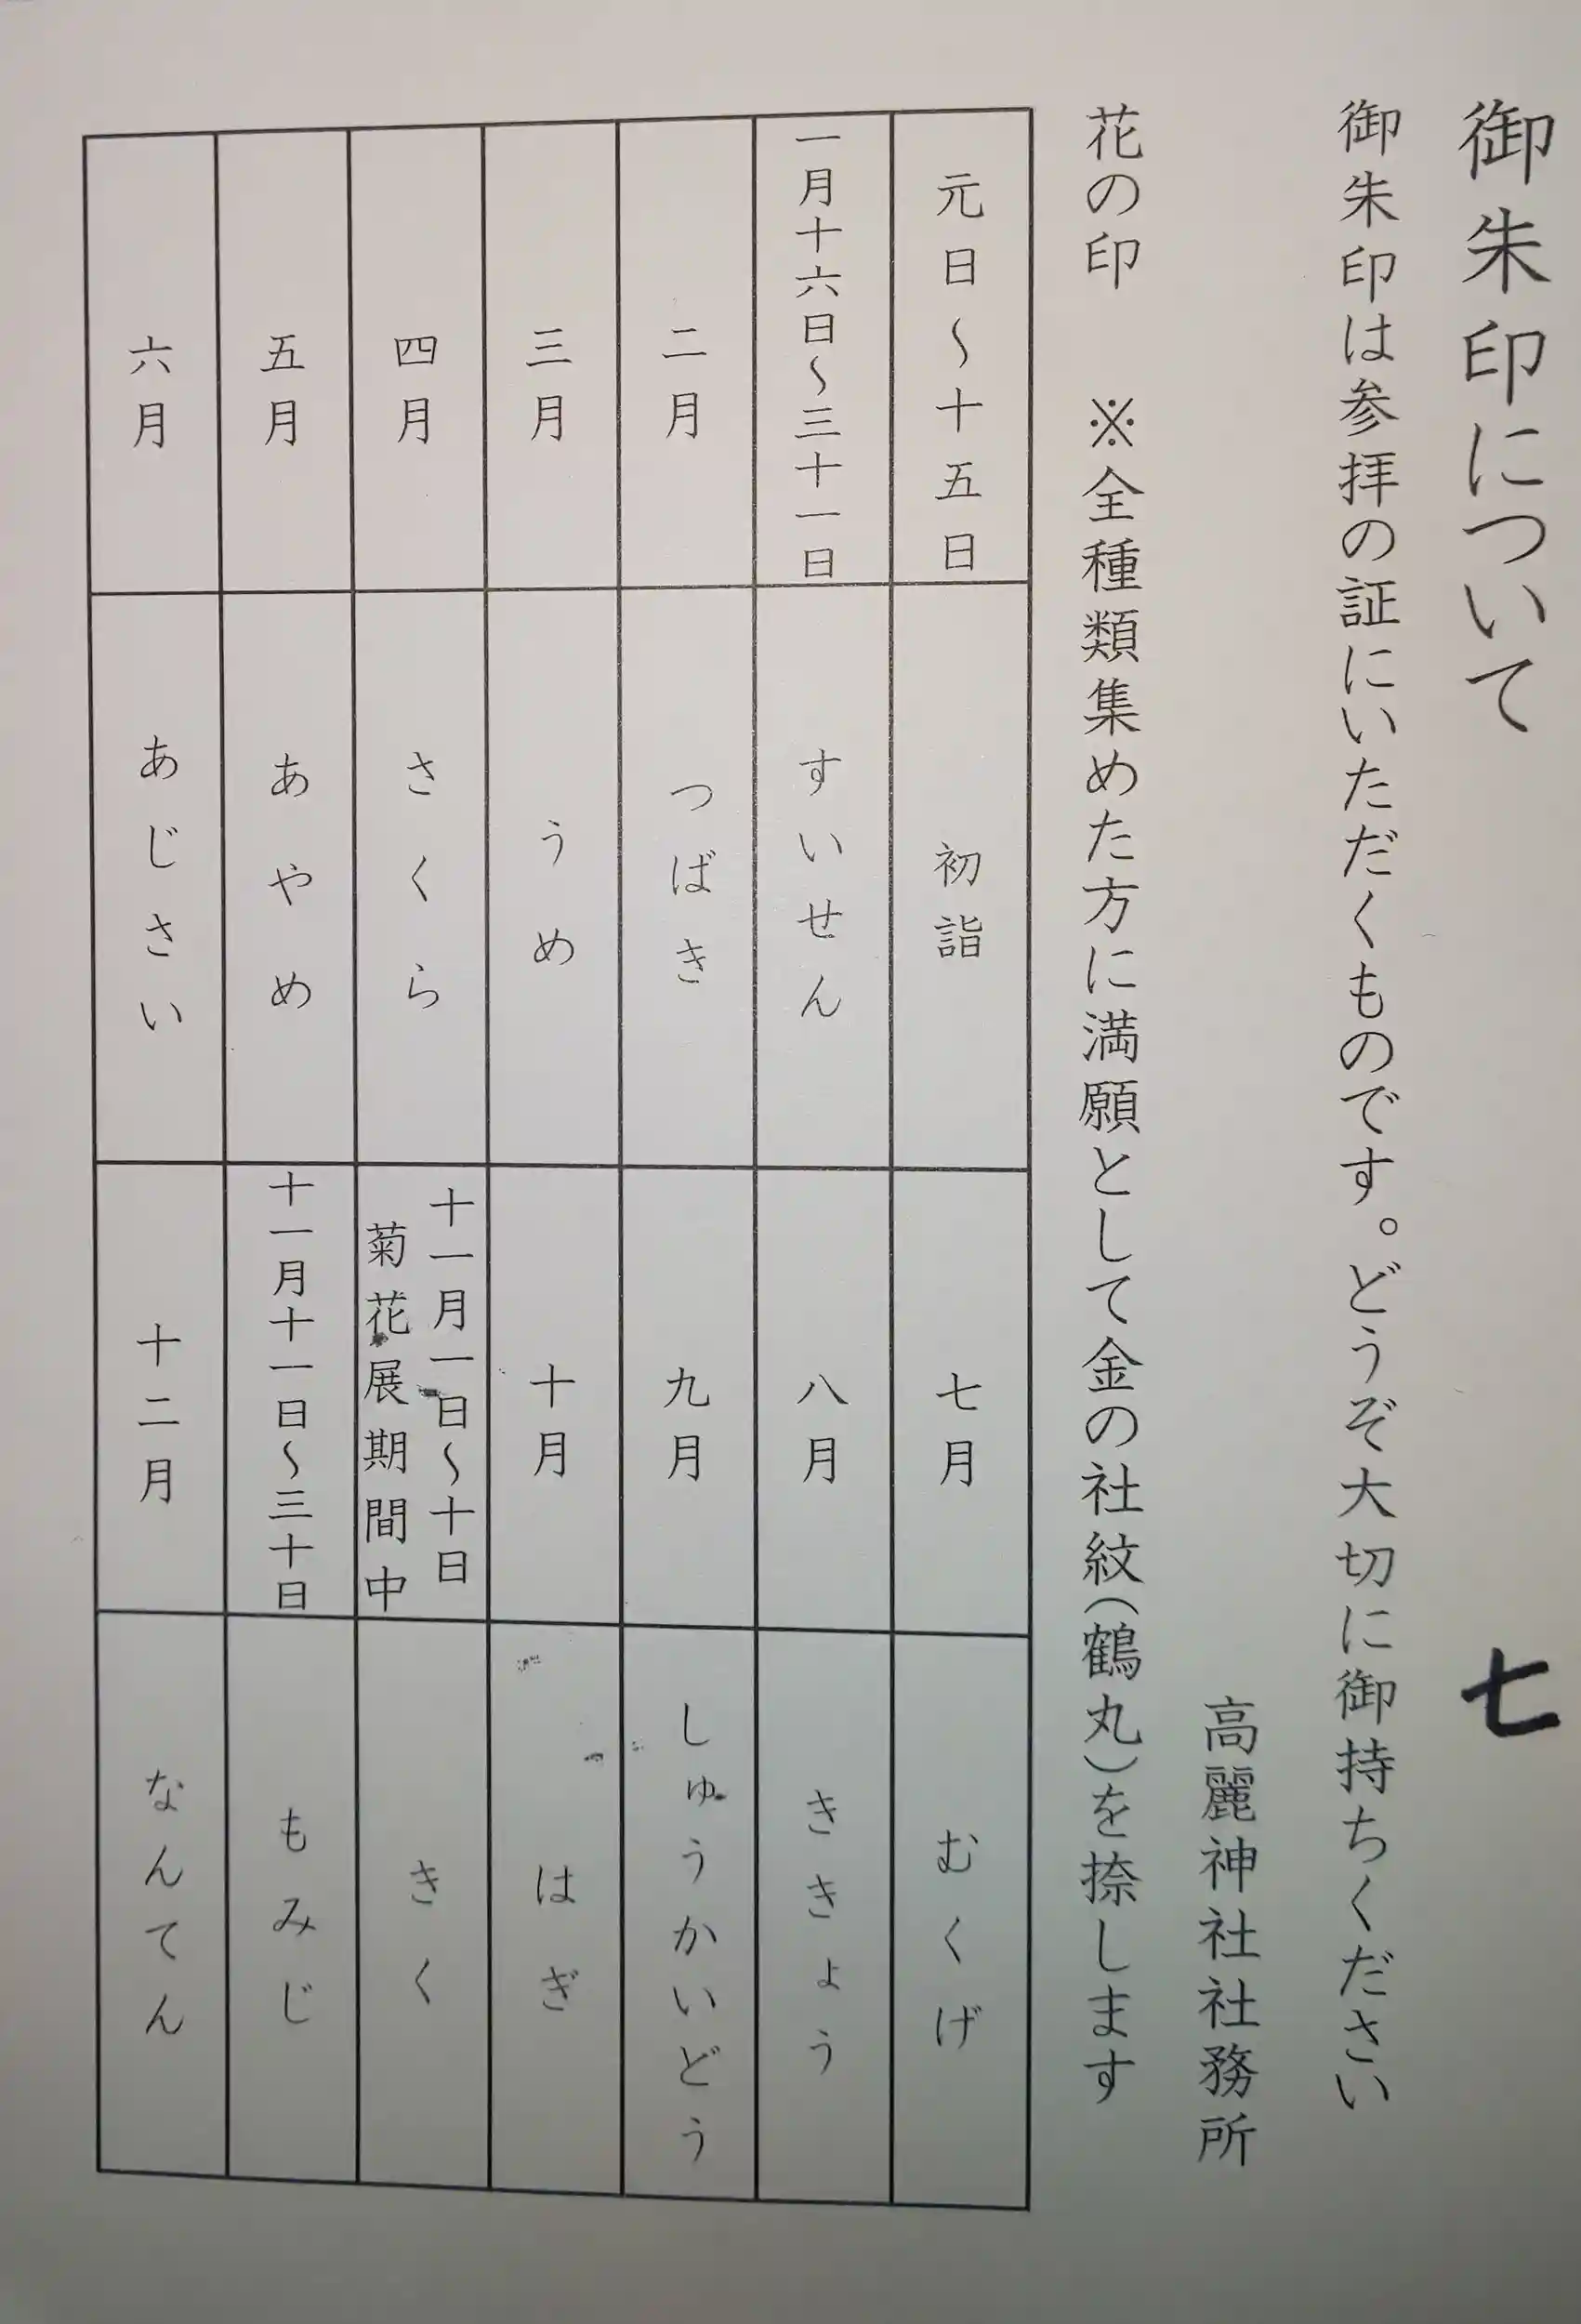 御朱印について　七
御朱印は参拝の証にいただくものです。どうぞ大切に御持ちください
高麗神社社務所
花の印　※全種類集めた方に満願として金の社紋(鶴丸)を捺します
元日〜十五日　初詣　七月　むくげ
一月十六日〜三十一日　すいせん　八月　ききょう
二月　つばき　九月　しゅうかいどう
三月　うめ　十月　はぎ
四月　さくら　十一月一日〜十日　菊花展期間中　きく
五月　あやめ　十一月十一日〜三十日　もみじ
六月　あじさい　十二月　なんてん